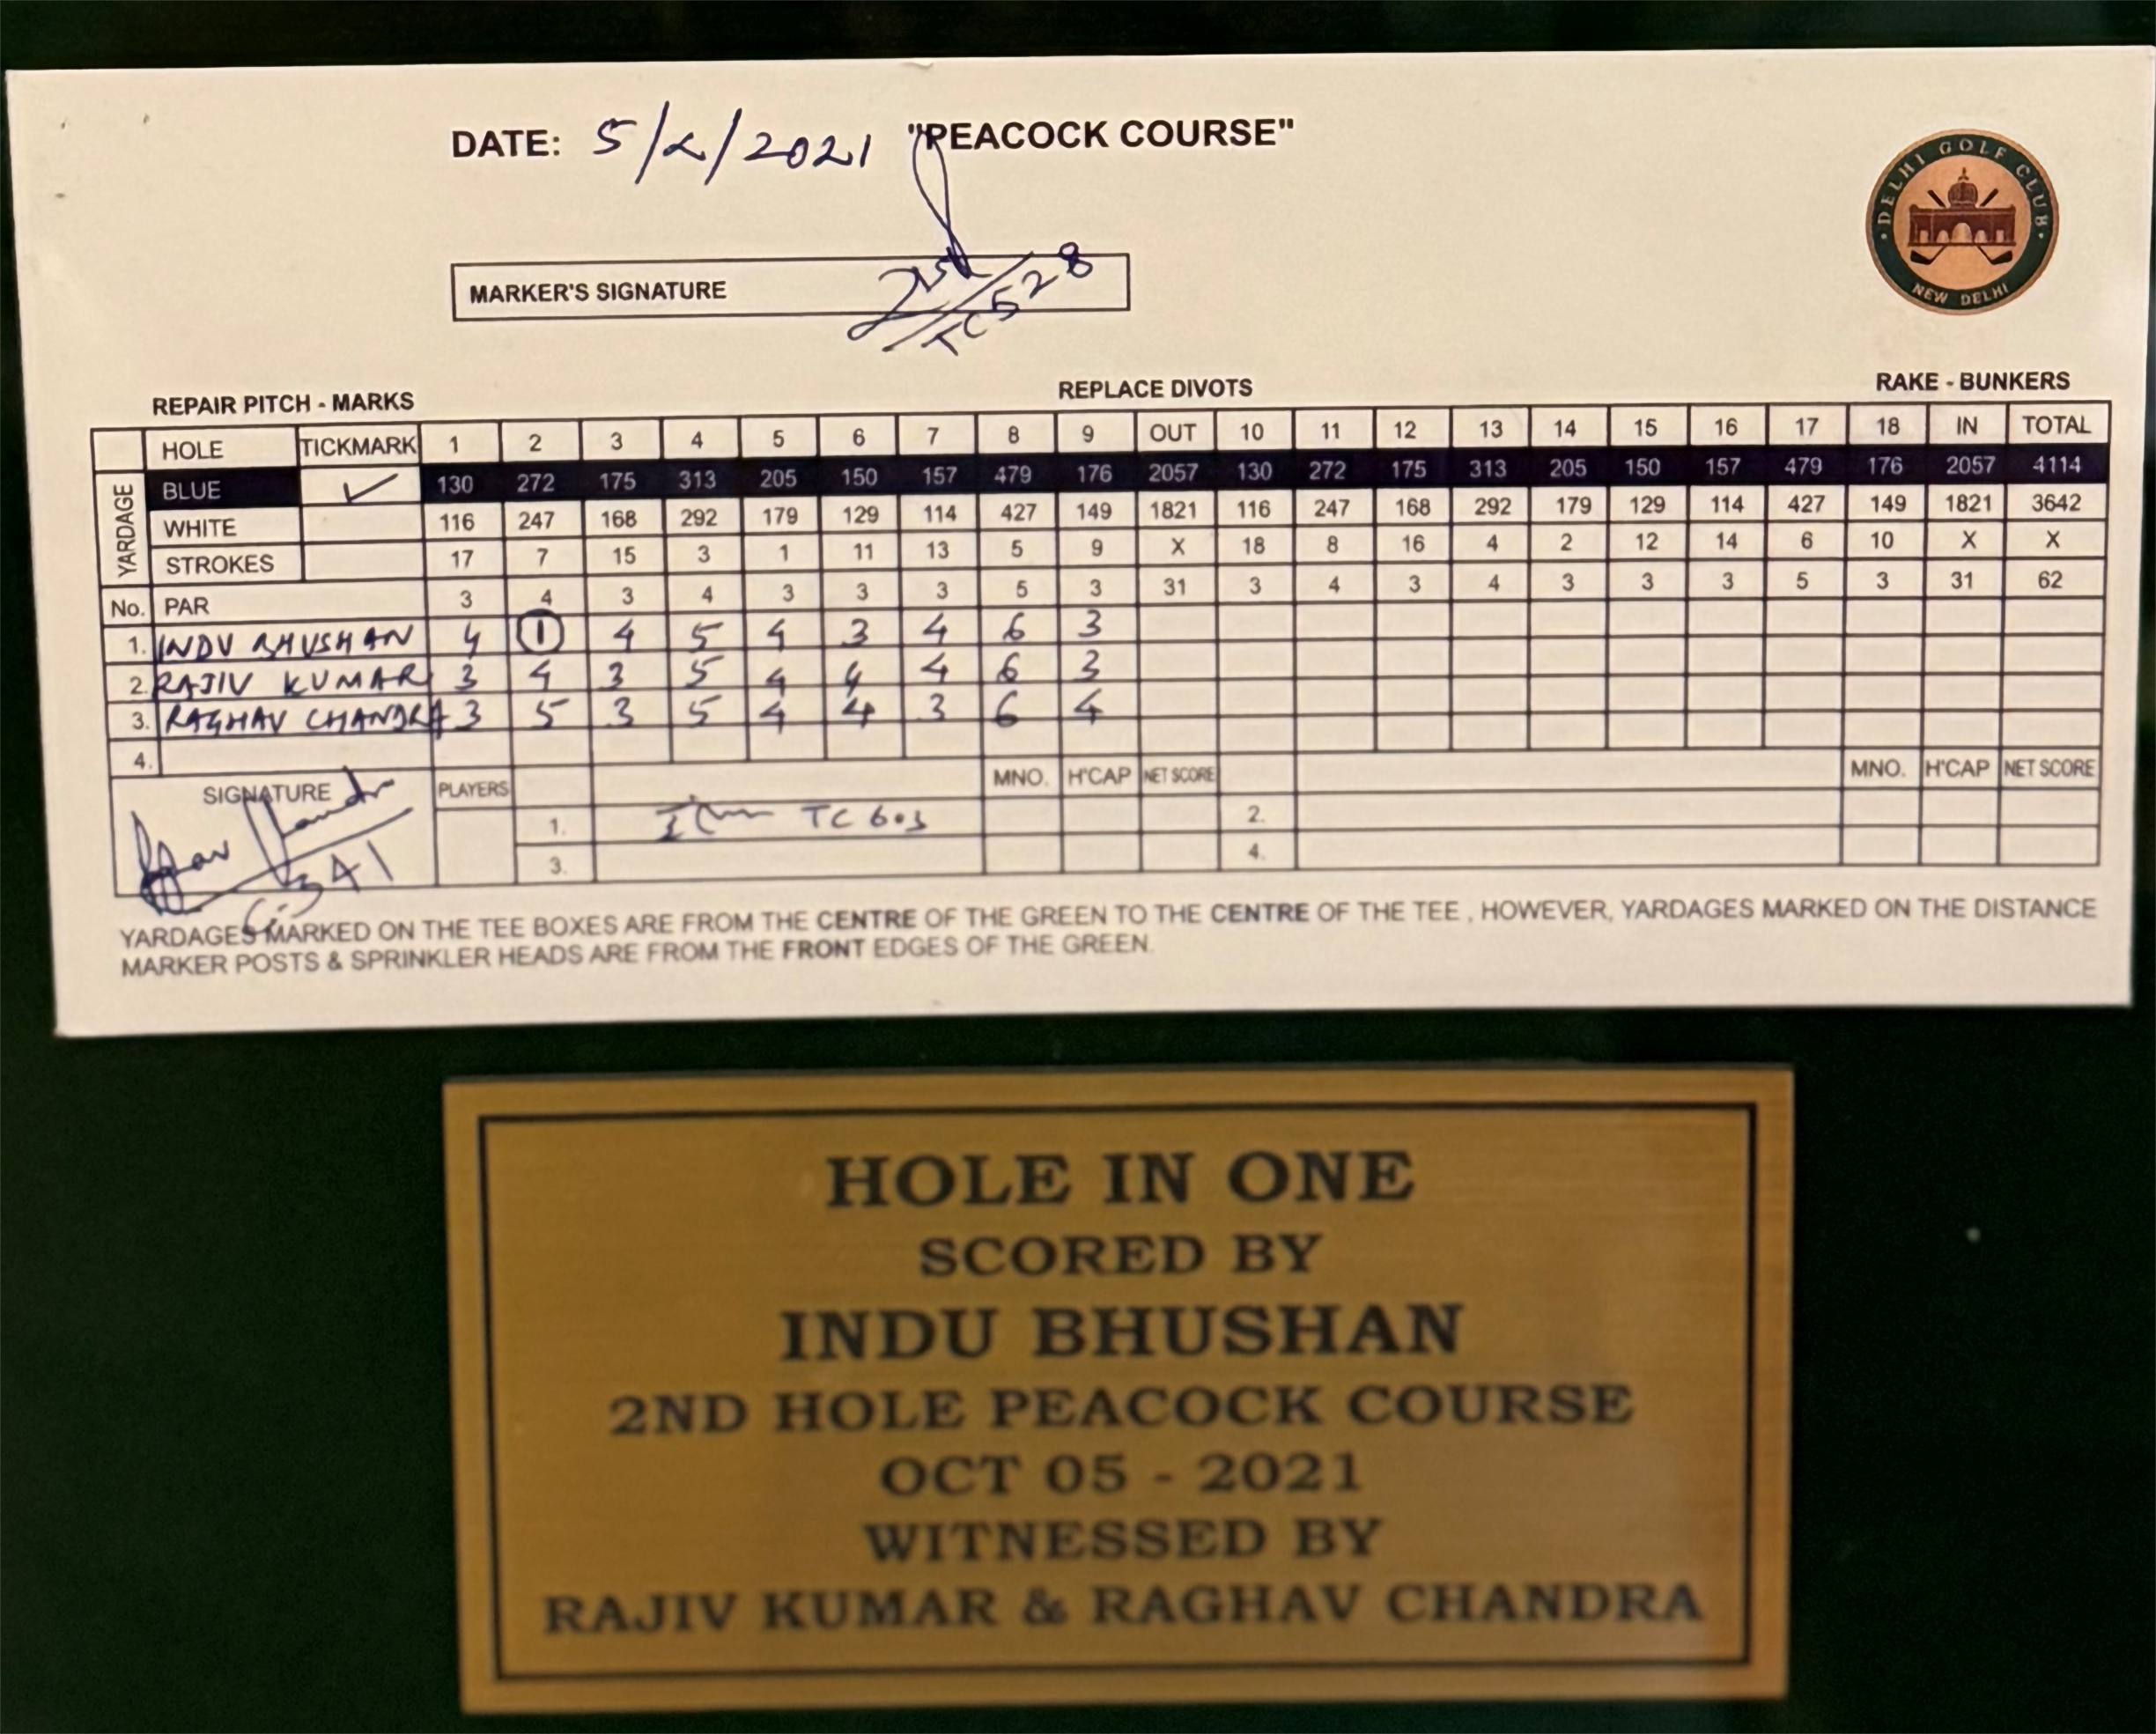 DATE: 5/x/2021 "PEACOCK COURSE"
DELHI GOLF CLUB
NEW DELHI
MARKER'S SIGNATURE
TC 528
REPAIR PITCH - MARKS REPLACE DIVOTS RAKE - BUNKERS
HOLE TICKMARK 1 2 3 4 5 6 7 8 9 OUT 10 11 12 13 14 15 16 17 18 IN TOTAL
YARDAGE
BLUE ✓ 130 272 175 313 205 150 157 479 176 2057 130 272 175 313 205 150 157 479 176 2057 4114
WHITE 116 247 168 292 179 129 114 427 149 1821 116 247 168 292 179 129 114 427 149 1821 3642
STROKES 17 7 15 3 1 11 13 5 9 X 18 8 16 4 2 12 14 6 10 X X
No. PAR 3 4 3 4 3 3 3 5 3 31 3 4 3 4 3 3 3 5 3 31 62
1. INDU BHUSHAN 4 1 4 5 4 3 4 6 3
2. RAJIV KUMAR 3 4 3 5 4 4 4 6 3
3. RAGHAV CHANDRA 3 5 3 5 4 4 3 6 4
4.
SIGNATURE PLAYERS MNO. H'CAP NET SCORE MNO. H'CAP NET SCORE
1. TC 603 2.
3. 4.
YARDAGES MARKED ON THE TEE BOXES ARE FROM THE CENTRE OF THE GREEN TO THE CENTRE OF THE TEE , HOWEVER, YARDAGES MARKED ON THE DISTANCE
MARKER POSTS & SPRINKLER HEADS ARE FROM THE FRONT EDGES OF THE GREEN.
HOLE IN ONE
SCORED BY
INDU BHUSHAN
2ND HOLE PEACOCK COURSE
OCT 05 - 2021
WITNESSED BY
RAJIV KUMAR & RAGHAV CHANDRA